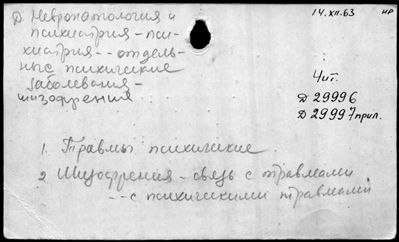 Д. Невропатология и
психиатрия - пси-
хиатрия -- отдель-
ные психические
заболевания -
шизофрения
14.XII.63
НР
Чит.
Д 29996
Д 29997 прил.
1. Травмы психические.
2. Шизофрения - связь с травмами
-- с психическими травмами